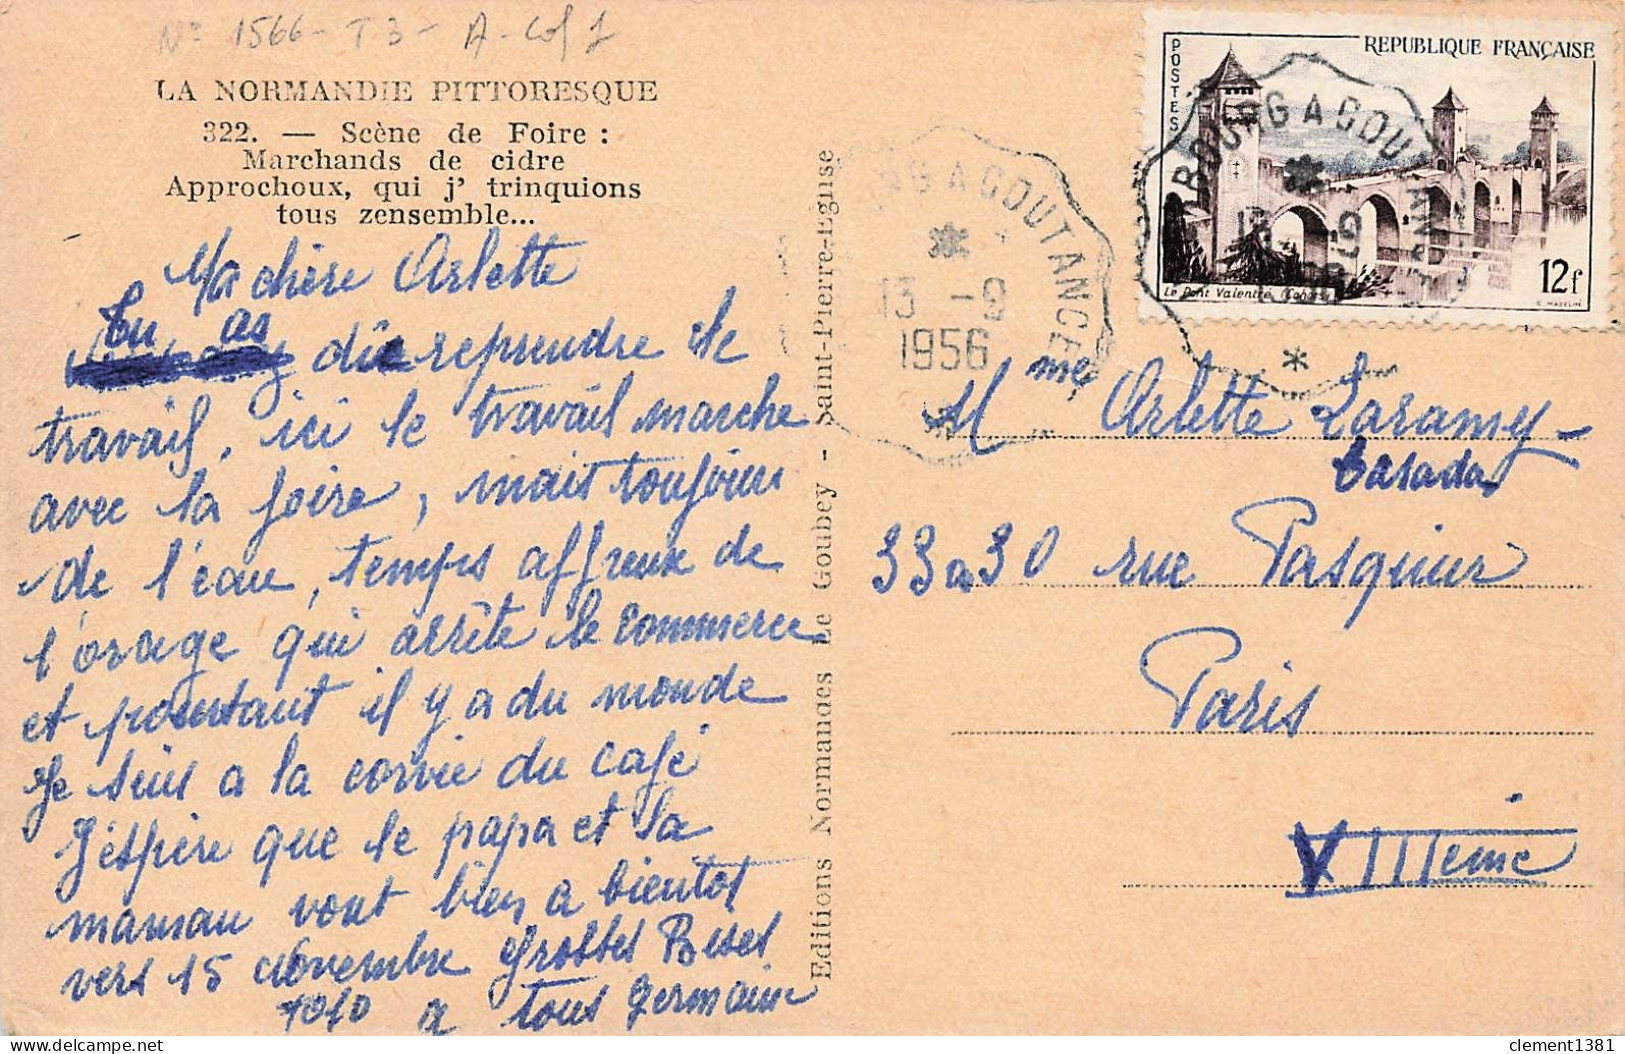 Nº 1566 - T 3 - A - Col 1
LA NORMANDIE PITTORESQUE
322. — Scène de Foire :
Marchands de cidre
Approchoux, qui j' trinquions
tous zensemble...
Ma chère Arlette
Tu as
dû reprendre le
travail, ici le travail marche
avec la foire, mais toujours
de l'eau, temps affreux de
l'orage qui arrête le commerce
et pourtant il y a du monde
Je suis a la corvée du café
J'éspère que le papa et la
maman vont bien a bientot
vers 15 novembre Grosses Bises
a tous Germain
Editions Normandes Le Goubey - Saint-Pierre-Eglise
RG A COUTANCES
13 -9
1956
POSTES
REPUBLIQUE FRANÇAISE
Le Pont Valentré (Cahors)
12f
C. MAZELIN
BOURG A COUTANCES
13 -9
Mme Arlette Laramy-
Casada
33 a 30 rue Pasquier
Paris
VIIIeme
clement1381